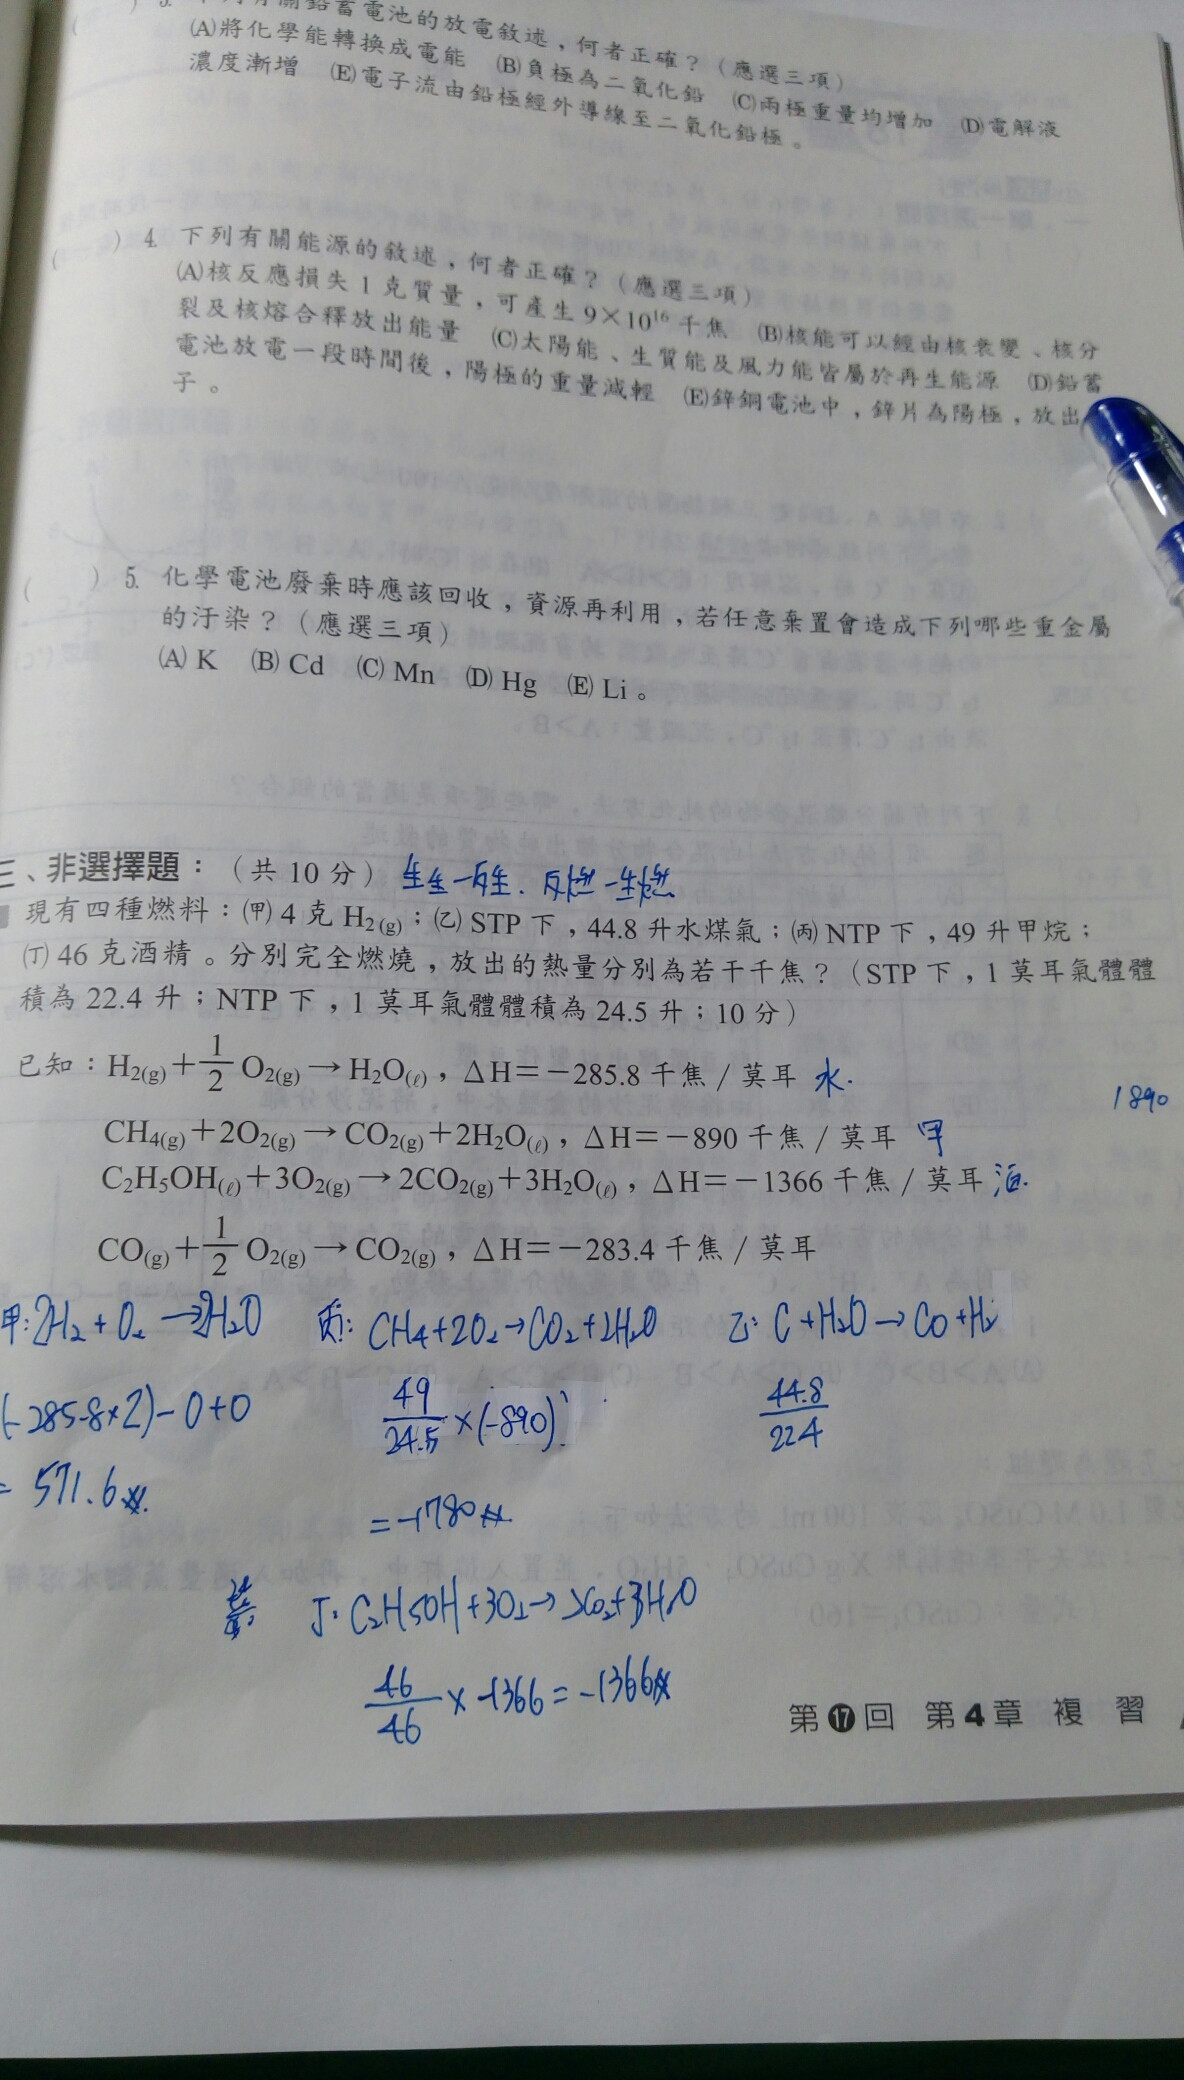 ( ) 3. 下列有關鉛蓄電池的放電敘述，何者正確？（應選三項）
(A)將化學能轉換成電能 (B)負極為二氧化鉛 (C)兩極重量均增加 (D)電解液
濃度漸增 (E)電子流由鉛極經外導線至二氧化鉛極。
( ) 4. 下列有關能源的敘述，何者正確？（應選三項）
(A)核反應損失1克質量，可產生9×10¹⁶千焦 (B)核能可以經由核衰變、核分
裂及核熔合釋放出能量 (C)太陽能、生質能及風力能皆屬於再生能源 (D)鉛蓄
電池放電一段時間後，陽極的重量減輕 (E)鋅銅電池中，鋅片為陽極，放出
子。
( ) 5. 化學電池廢棄時應該回收，資源再利用，若任意棄置會造成下列哪些重金屬
的汙染？（應選三項）
(A) K (B) Cd (C) Mn (D) Hg (E) Li。
三、非選擇題：（共10分） 生生-反生. 反燃-生燃
現有四種燃料：(甲) 4克H₂(g)；(乙) STP下，44.8升水煤氣；(丙) NTP下，49升甲烷；
(丁) 46克酒精。分別完全燃燒，放出的熱量分別為若干千焦？（STP下，1莫耳氣體體
積為22.4升；NTP下，1莫耳氣體體積為24.5升；10分）
已知：H₂(g)＋1/2 O₂(g)→H₂O(ℓ)，ΔH＝－285.8千焦／莫耳 水.
1890
CH₄(g)＋2O₂(g)→CO₂(g)＋2H₂O(ℓ)，ΔH＝－890千焦／莫耳 甲
C₂H₅OH(ℓ)＋3O₂(g)→2CO₂(g)＋3H₂O(ℓ)，ΔH＝－1366千焦／莫耳 酒.
CO(g)＋1/2 O₂(g)→CO₂(g)，ΔH＝－283.4千焦／莫耳
甲: 2H₂ + O₂ → 2H₂O 丙: CH₄+2O₂→CO₂+2H₂O 乙: C+H₂O→CO+H₂
(-285.8×2)-0+0 49/24.5 ×(-890) 44.8/22.4
= 571.6
=-1780
丁: C₂H5OH+3O₂→2CO₂+3H₂O
46/46 × -1366 = -1366
第⓱回 第4章 複習